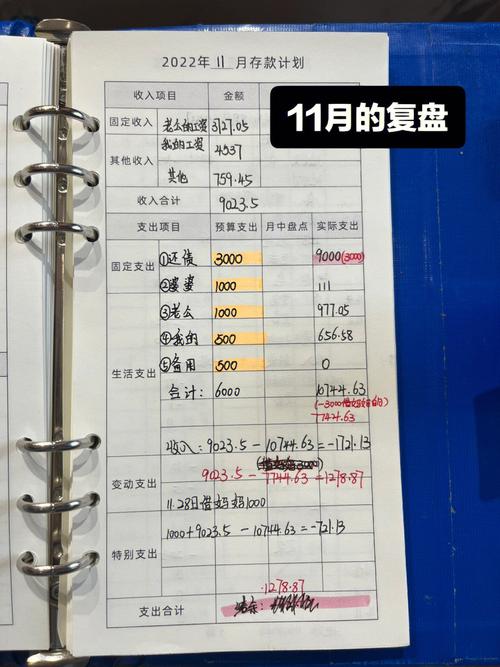 2022年11月存款计划
11月的复盘
收入项目 金额
固定收入 老公的工资 3727.05
我的工资 4537
其他收入 其他 759.45
收入合计 9023.5
支出项目 预算支出 月中盘点 实际支出
固定支出 ①还债 3000 9000(3000)
②婆婆 1000 111
③老公 1000 977.05
④我的 500 656.58
生活支出 ⑤备用 500 0
合计: 6000 10744.63
7744.63
收入: 9023.5-10744.63=-1721.13
变动支出 9023.5-7744.63=1278.87
11.28日借妈妈1000
特别支出 1000+9023.5-10744.63=-721.13
1278.87
支出合计 结余: